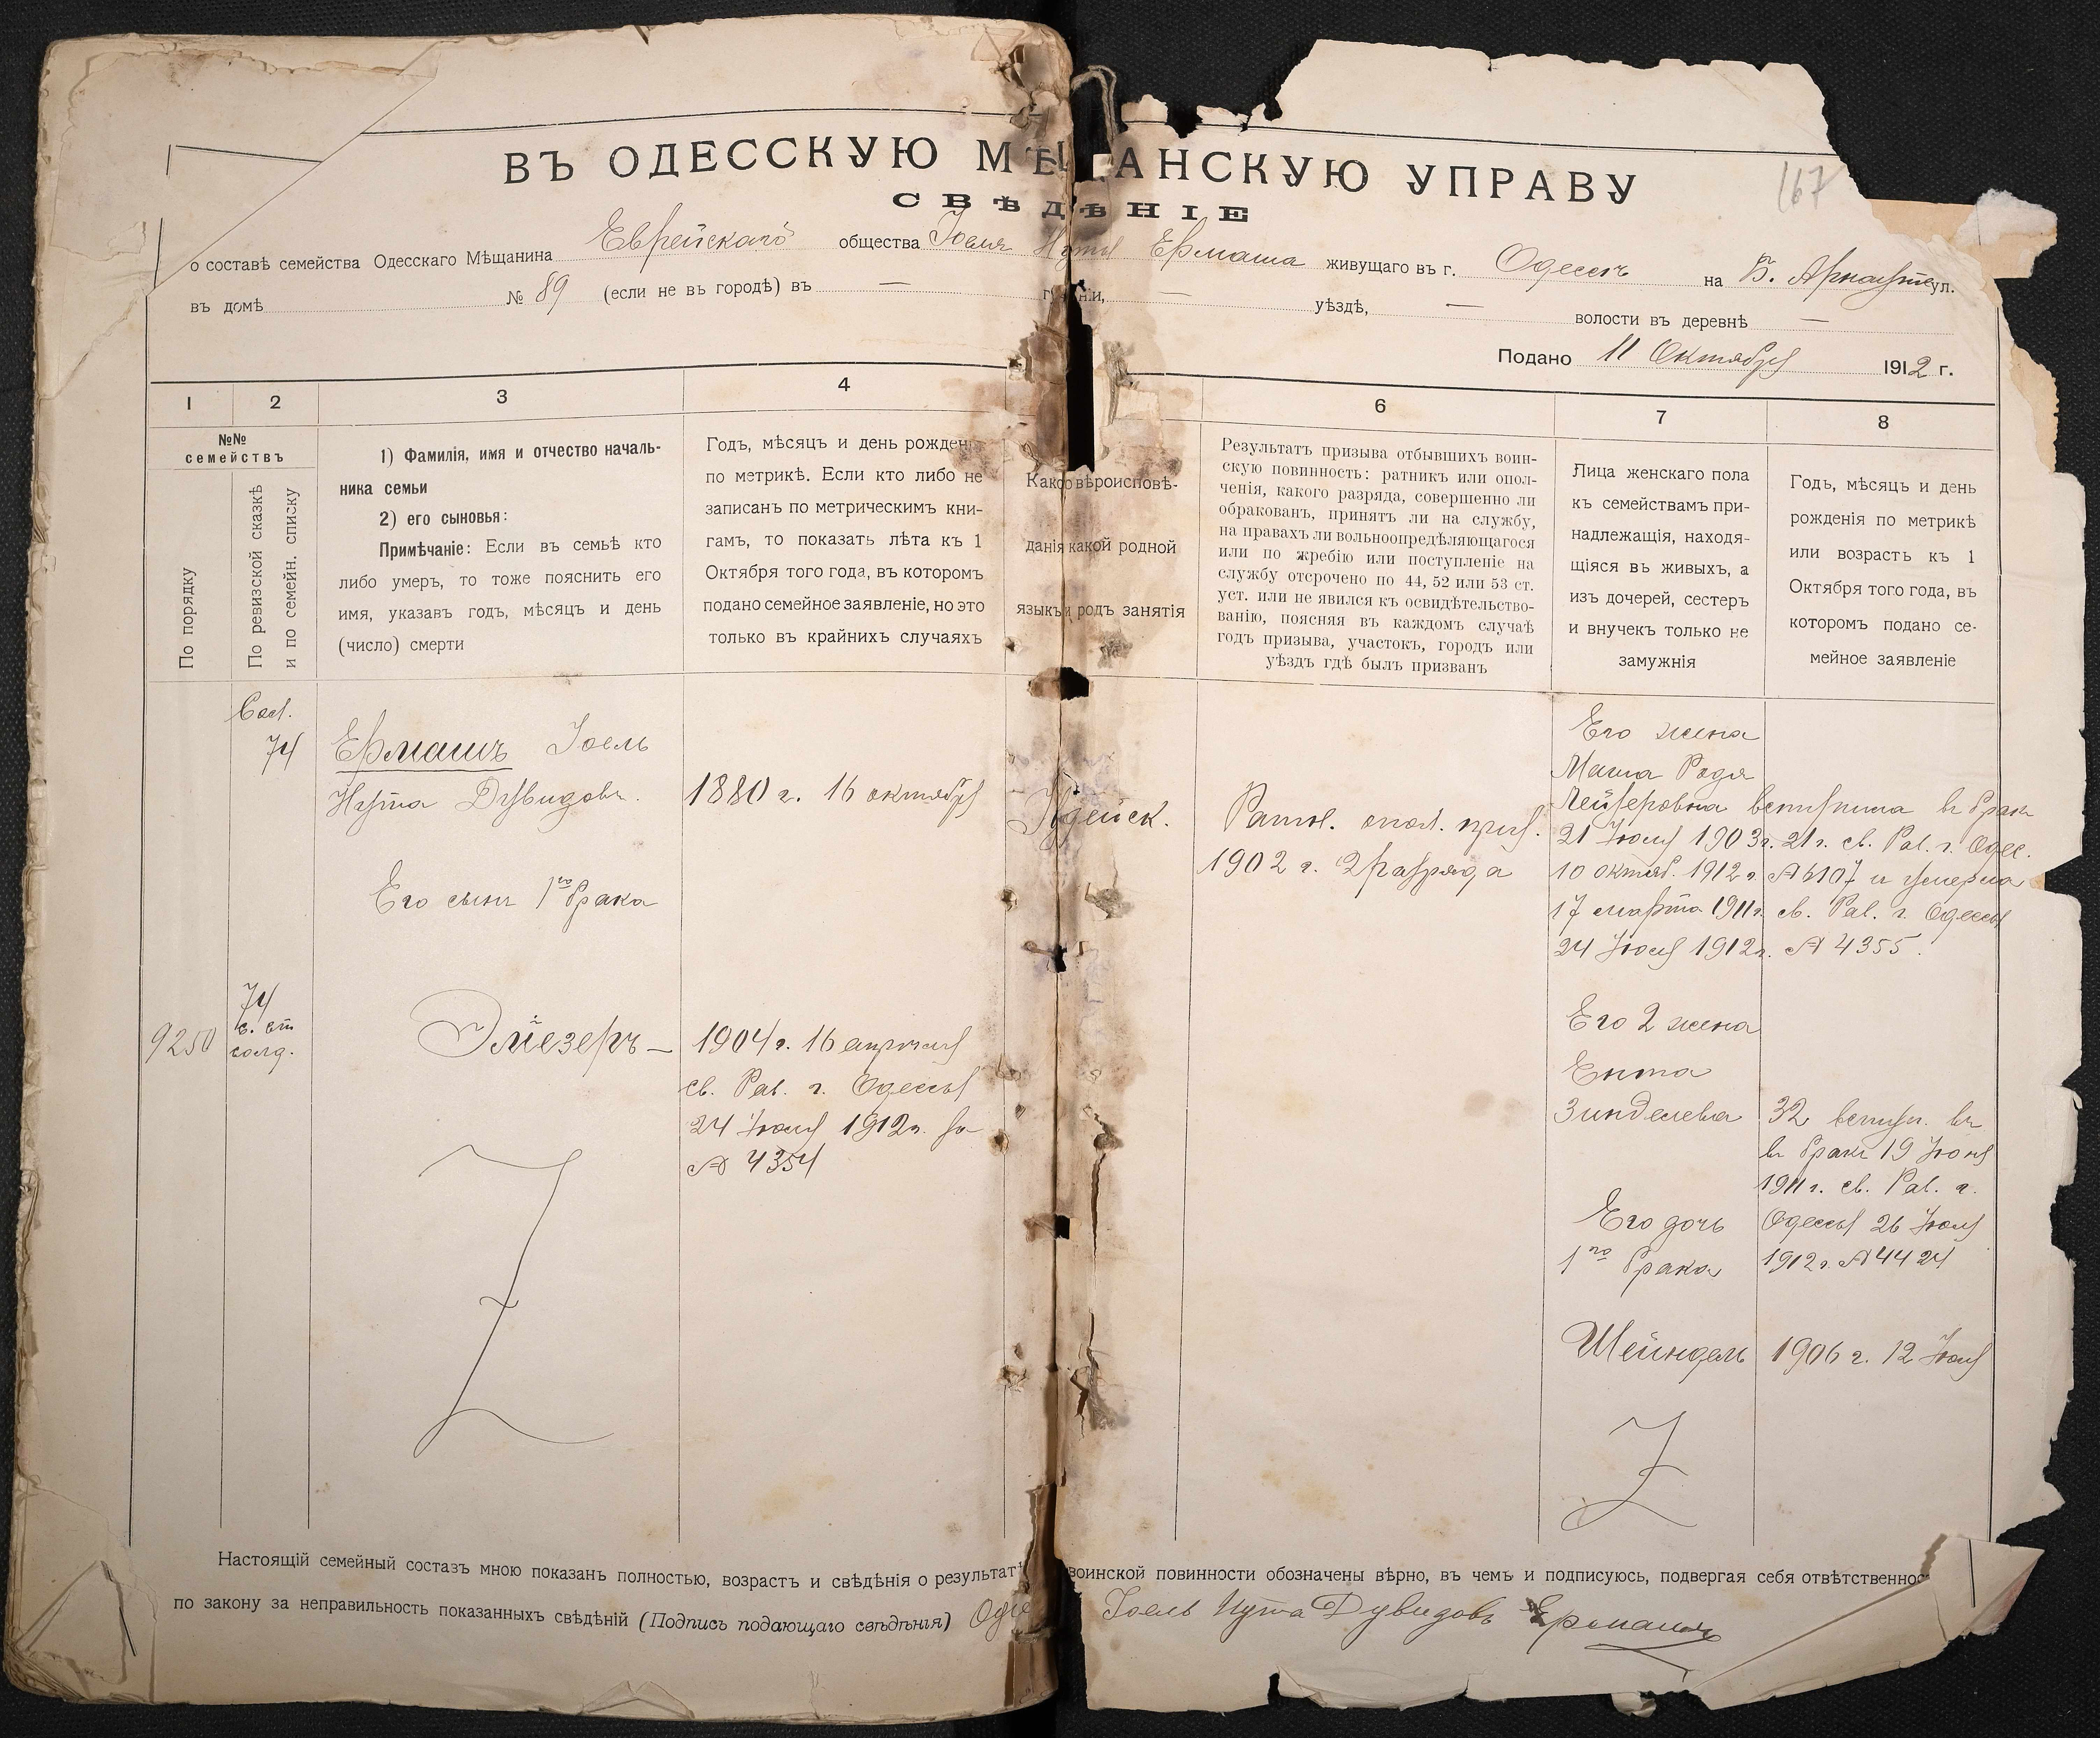 ВЪ ОДЕССКУЮ МѢЩАНСКУЮ УПРАВУ
167
СВѢДѢНІЕ
о составѣ семейства Одесскаго Мѣщанина Еврейскаго общества Іоеля Нуты Ермаша живущаго въ г. Одессѣ на Б. Арнаутск ул.
въ домѣ № 89 (если не въ городѣ) въ — губерніи, — уѣздѣ, — волости въ деревнѣ —
Подано 11 Октября 1912 г.
1 2 3 4 6 7 8
№№
семействъ
По порядку
По ревизской сказкѣ
и по семейн. списку
1) Фамилія, имя и отчество началь-
ника семьи
2) его сыновья:
Примѣчаніе: Если въ семьѣ кто
либо умеръ, то тоже пояснить его
имя, указавъ годъ, мѣсяцъ и день
(число) смерти
Годъ, мѣсяцъ и день рожденія
по метрикѣ. Если кто либо не
записанъ по метрическимъ кни-
гамъ, то показать лѣта къ 1
Октября того года, въ которомъ
подано семейное заявленіе, но это
только въ крайнихъ случаяхъ
Какое вѣроисповѣ-
данія какой родной
языкъ и родъ занятія
Результатъ призыва отбывшихъ воин-
скую повинность: ратникъ или опол-
ченія, какого разряда, совершенно ли
обракованъ, принятъ ли на службу,
на правахъ ли вольноопредѣляющагося
или по жребію или поступленіе на
службу отсрочено по 44, 52 или 53 ст.
уст. или не явился къ освидѣтельство-
ванію, поясняя въ каждомъ случаѣ
годъ призыва, участокъ, городъ или
уѣздъ гдѣ былъ призванъ
Лица женскаго пола
къ семействамъ при-
надлежащія, находя-
щіяся въ живыхъ, а
изъ дочерей, сестеръ
и внучекъ только не
замужнія
Годъ, мѣсяцъ и день
рожденія по метрикѣ
или возрасть къ 1
Октября того года, въ
которомъ подано се-
мейное заявленіе
74
Ермашъ Іоель
Нута Дувидовъ.
1880 г. 16 октября
Іудейск.
Ратн. опол. приз.
1902 г. 2 разряда
Его жена
Маша Родя
Лейзеровна вступила въ бракъ
21 Іюля 1903 г. 21 г. св. Рав. г. Одес.
10 октяб. 1912 г. № 6107 и умерла
17 марта 1911 г. св. Рав. г. Одессы
24 Іюля 1912 г. № 4355.
Его сынъ 1го брака
9250
74
с. от
солд.
Элiезеръ — 1904 г. 16 апрѣля
св. Рав. г. Одессы
24 Іюля 1912 г. за
№ 4354
Его 2 жена
Ента
Зинделева 32 вступ. въ
въ бракъ 19 Іюня
1911 г. св. Рав. г.
Одессы 26 Іюля
1912 г. № 4424
Его дочь
1го брака
Шейндель 1906 г. 12 Іюля
Настоящій семейный составъ мною показанъ полностью, возрастъ и свѣдѣнія о результатѣ воинской повинности обозначены вѣрно, въ чемъ и подписуюсь, подвергая себя отвѣтственнос
по закону за неправильность показанныхъ свѣдѣній (Подпись подающаго свѣдѣнія) Оде Іоель Нута Дувидовъ Ермашъ